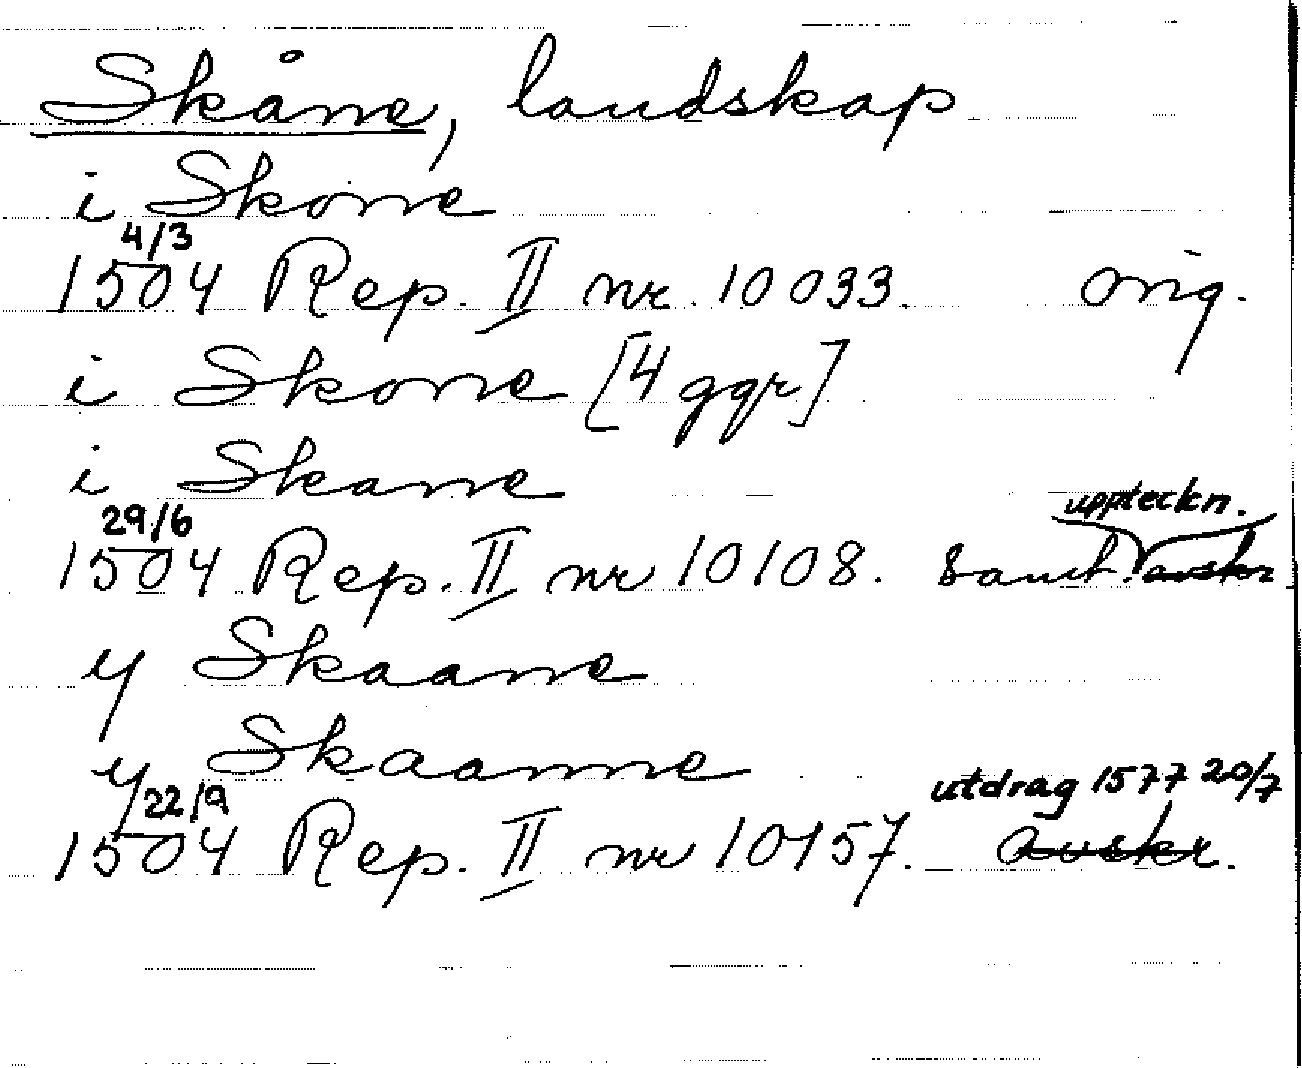 Skåne, landskap
i Skone
4/3
1504 Rep. II nr. 10033. orig.
i Skone [4 ggr]
i Skane
29/6 uppteckn.
1504 Rep. II nr 10108. Samt. avskr
y Skaane
y Skaanne
22/9 utdrag 1577 20/7
1504 Rep. II nr 10157. avskr.